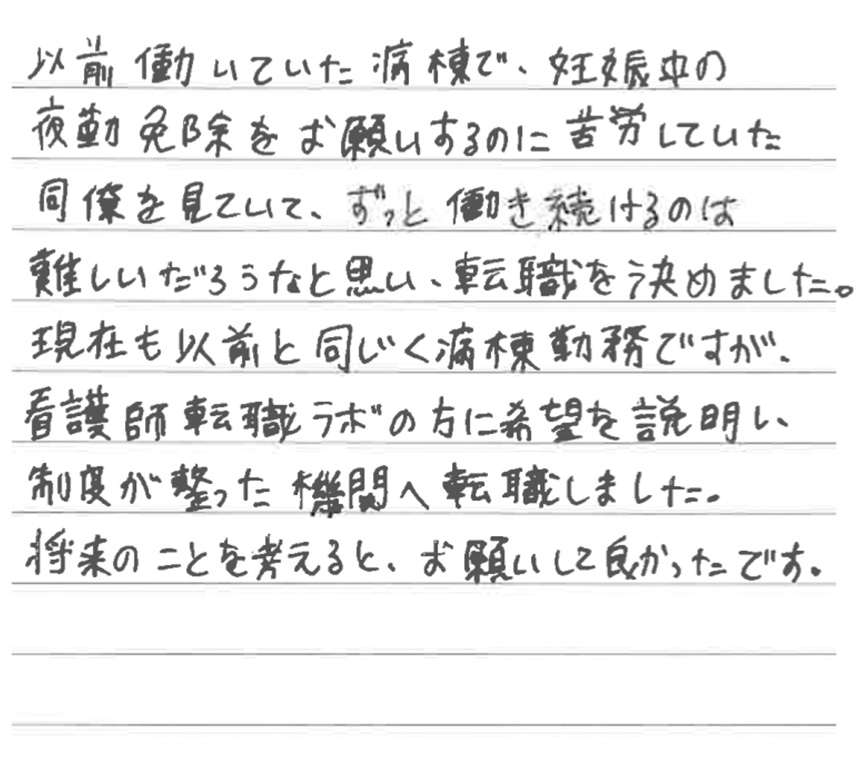 以前働いていた病棟で、妊娠中の
夜勤免除をお願いするのに苦労していた
同僚を見ていて、ずっと働き続けるのは
難しいだろうなと思い、転職を決めました。
現在も以前と同じく病棟勤務ですが、
看護師転職ラボの方に希望を説明し、
制度が整った機関へ転職しました。
将来のことを考えると、お願いして良かったです。